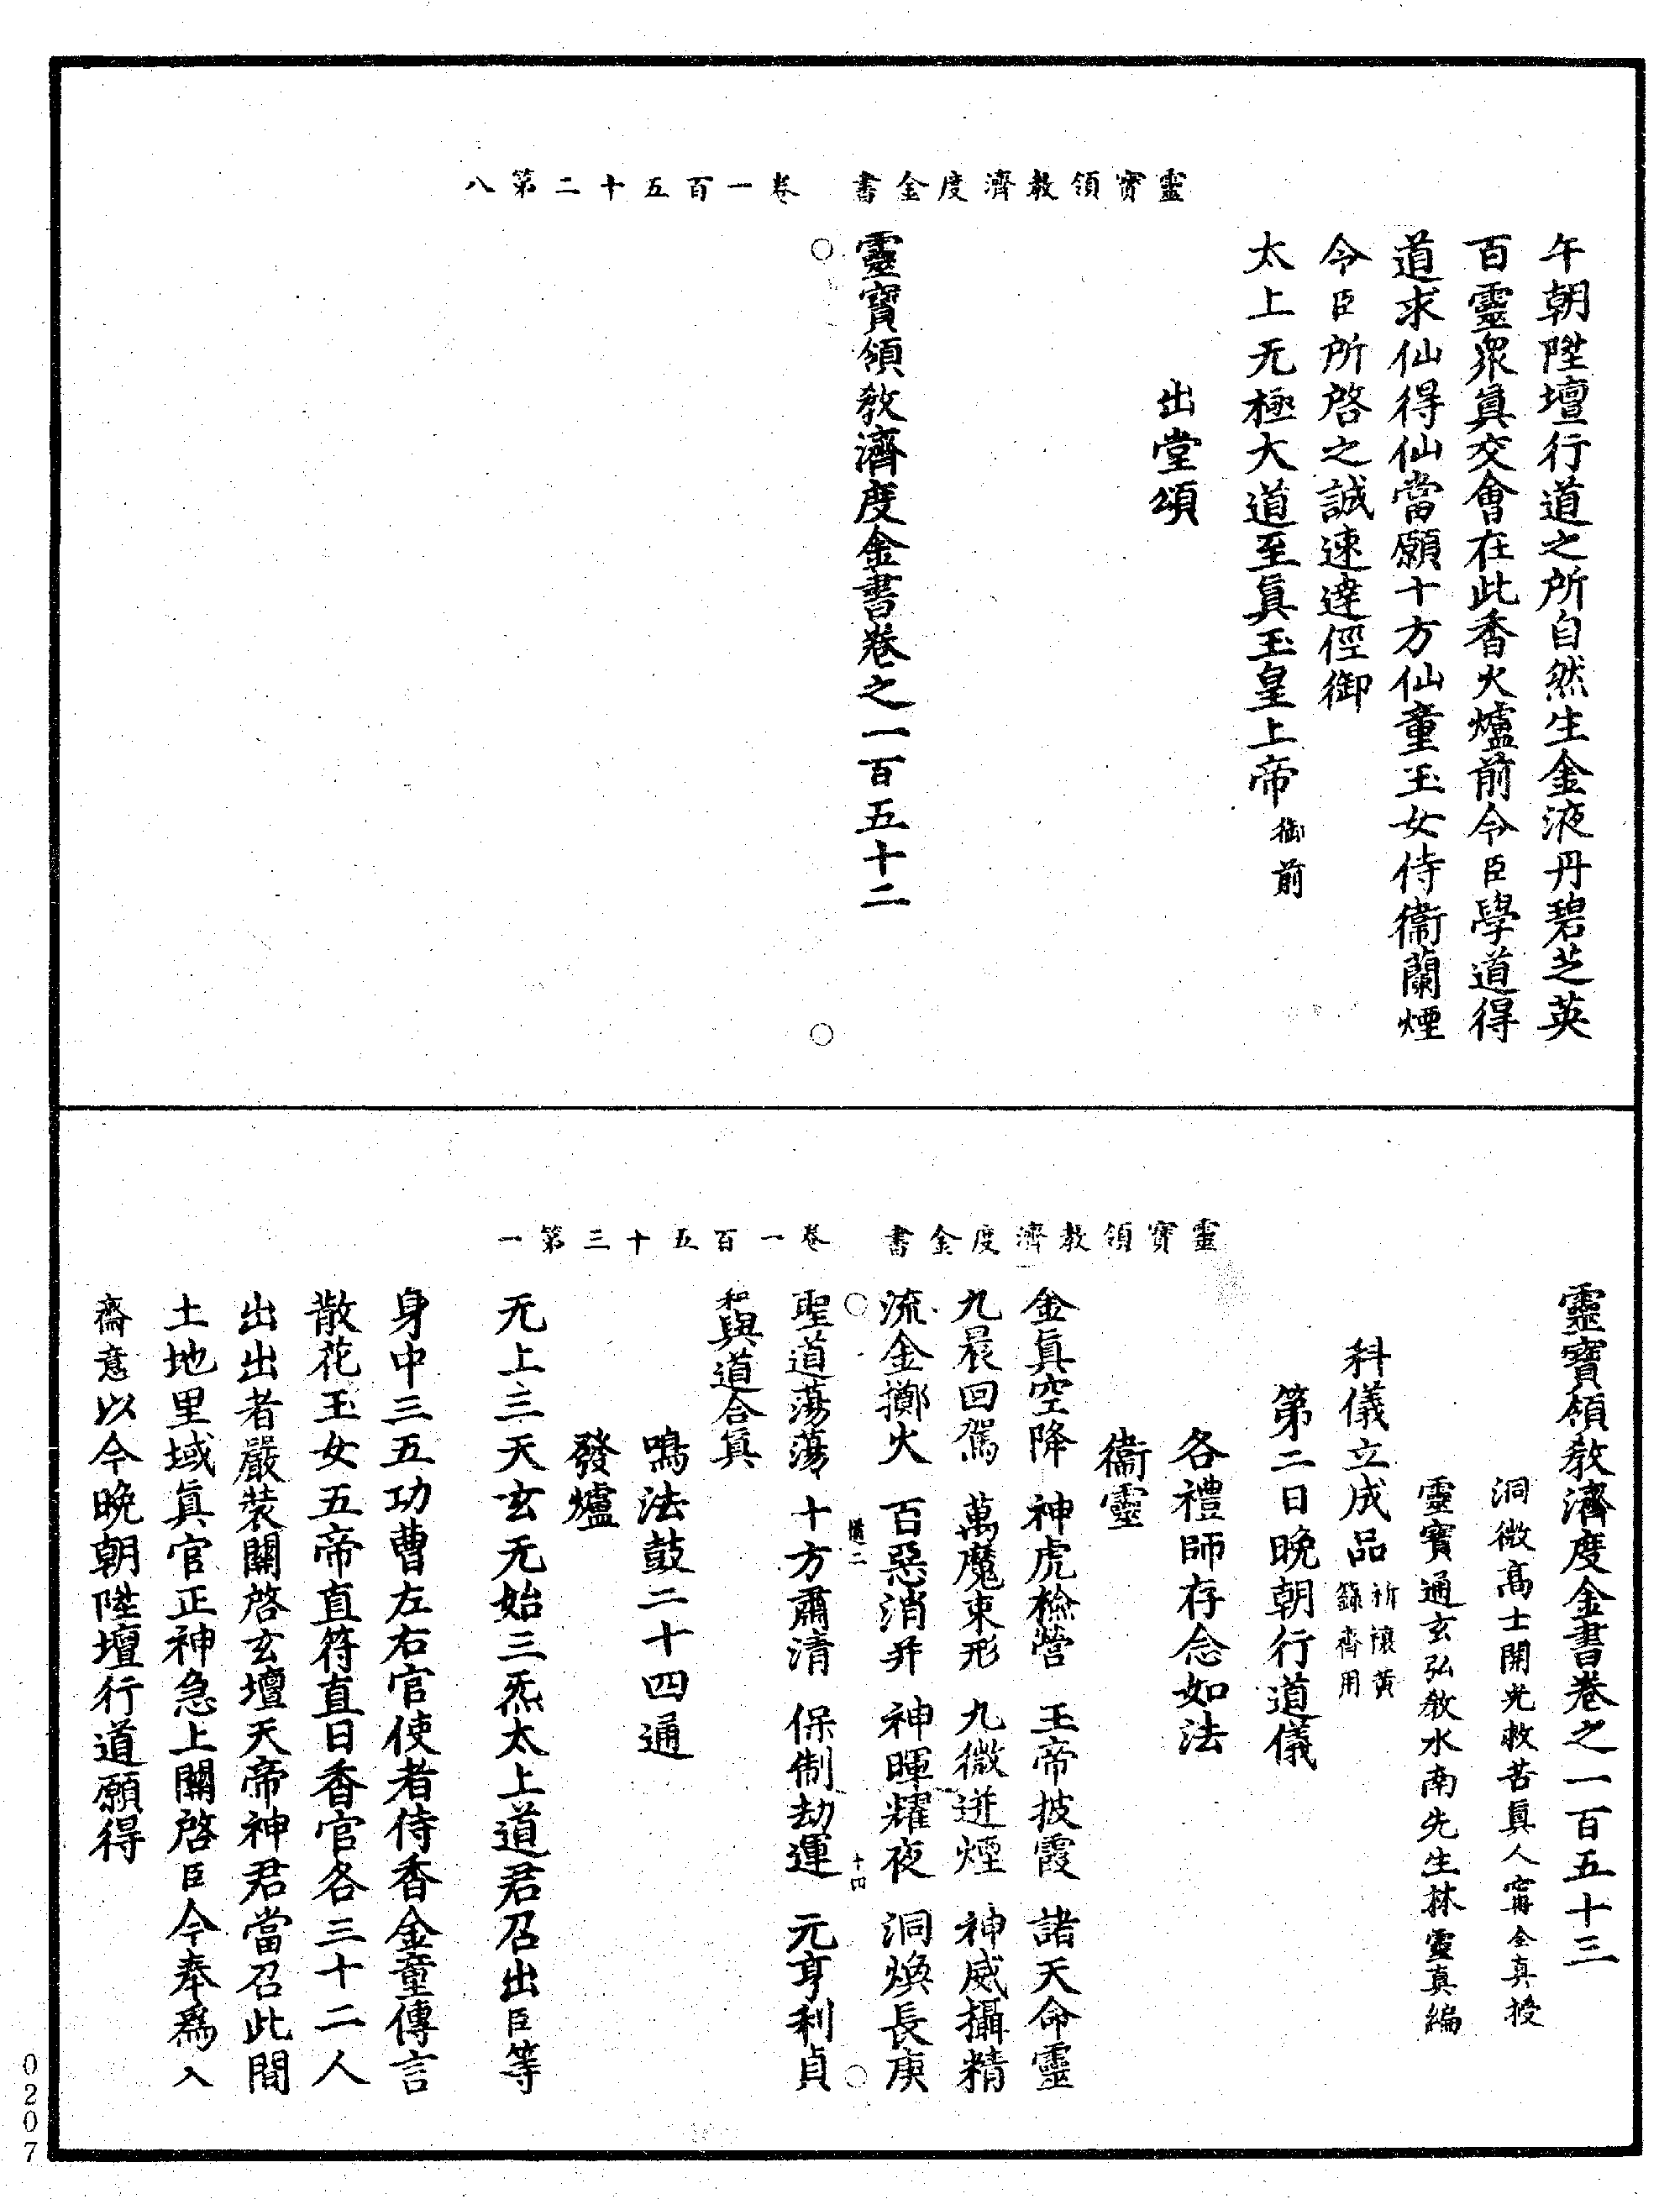 靈寶領教濟度金書　卷一百五十二第八
午朝陞壇行道之所自然生金液丹碧芝英
百靈衆眞交會在此香火爐前令臣學道得
道求仙得仙當願十方仙童玉女侍衞蘭煙
令臣所啓之誠速達徑御
太上无極大道至眞玉皇上帝御前
出堂頌
靈寶領敎濟度金書卷之一百五十二
靈寶領教濟度金書　卷一百五十三第一
靈寶領敎濟度金書卷之一百五十三
洞微高士開光救苦眞人甯全真授
靈寶通玄弘敎水南先生林靈真編
科儀立成品祈禳黃籙齋用
第二日晚朝行道儀
各禮師存念如法
衞靈
金眞空降　神虎檢營　玉帝披霞　諸天命靈
九晨回駕　萬魔束形　九微迸煙　神威攝精
流金擲火　百惡消屏　神暉耀夜　洞煥長庚
儀二　十四
聖道蕩蕩　十方肅清　保制劫運　元亨利貞
和與道合眞
鳴法鼓二十四通
發爐
无上三天玄元始三炁太上道君召出臣等
身中三五功曹左右官使者侍香金童傳言
散花玉女五帝直符直日香官各三十二人
出出者嚴裝關啓玄壇天帝神君當召此間
土地里域眞官正神急上關啓臣今奉爲入
齋意以今晚朝陞壇行道願得
0207